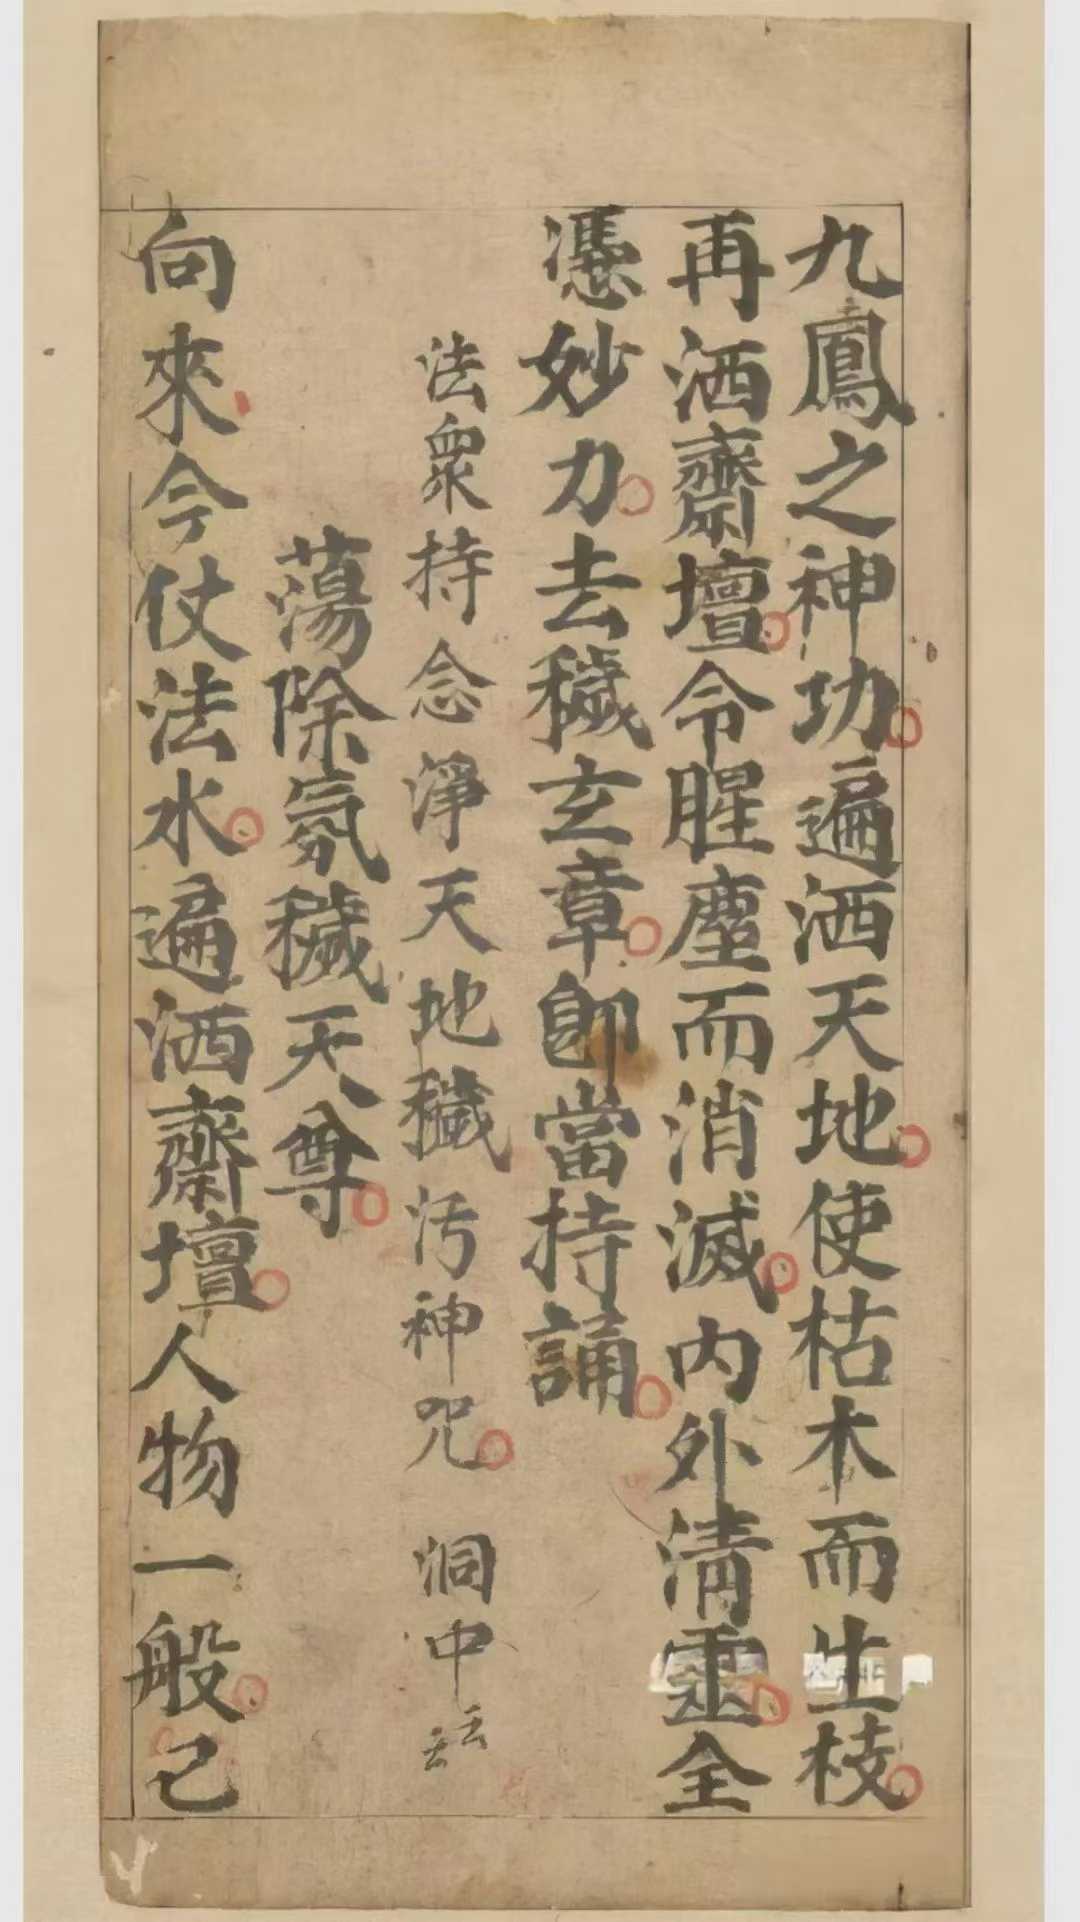 九鳳之神功遍洒天地使枯木而生枝
再洒齋壇令腥塵而消滅内外清靈全
憑妙力去穢玄章即當持誦
法衆持念淨天地穢污神咒 洞中云云
蕩除氛穢天尊
向來今仗法水遍洒齋壇人物一般已